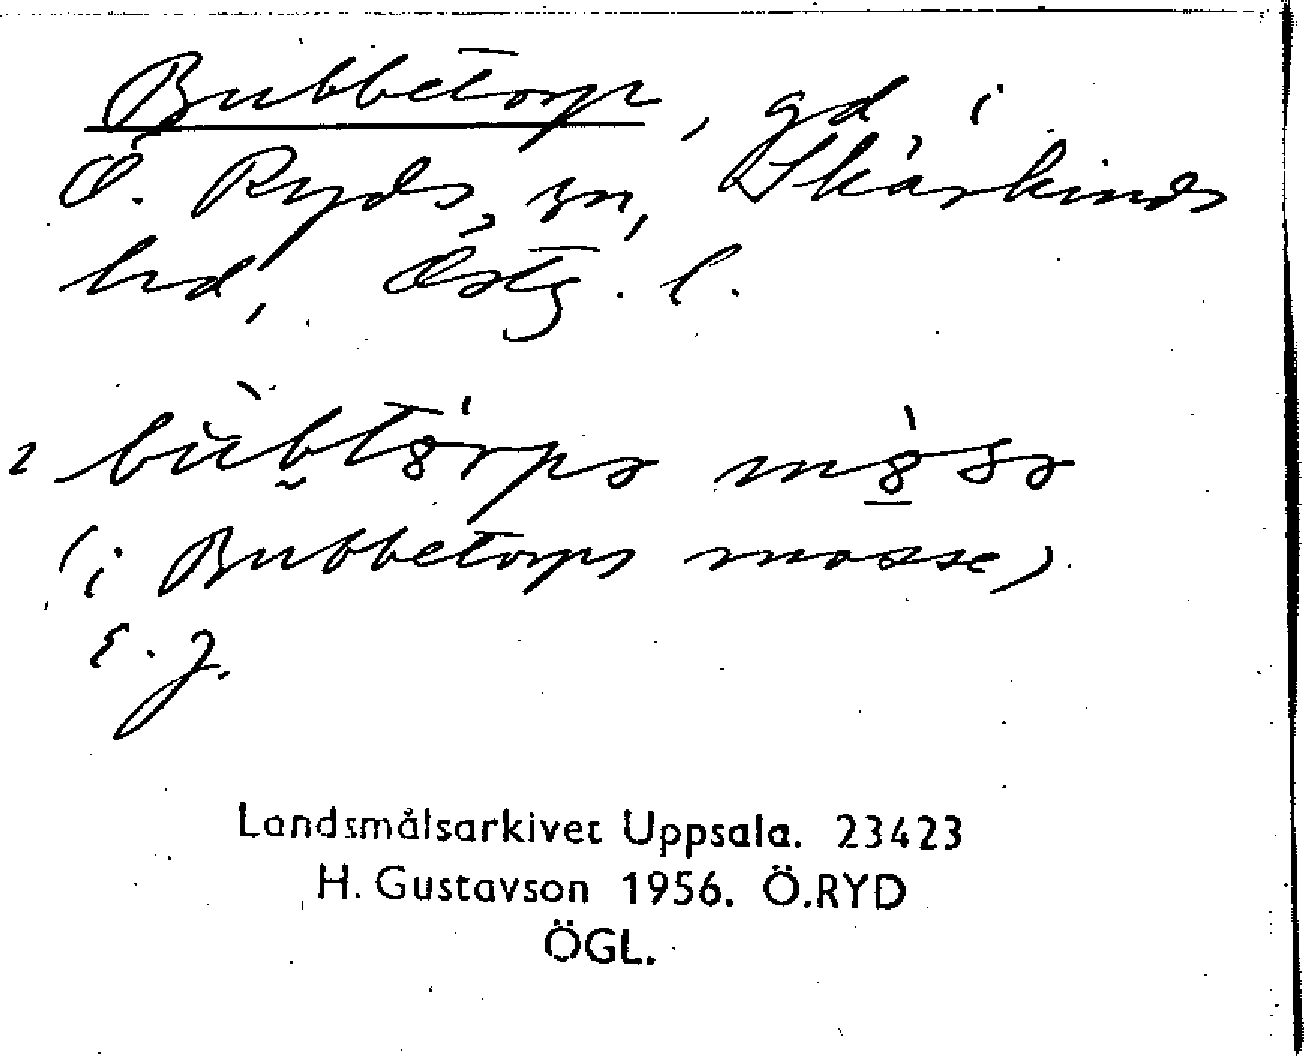 Bubbetorp, gd i
Ö. Ryds sn, Skärkinds
hd, Östg. l.
(i Bubbetorps mosse)
E. J.
Landsmålsarkivet Uppsala. 23423
H. Gustavson 1956. Ö.RYD
ÖGL.